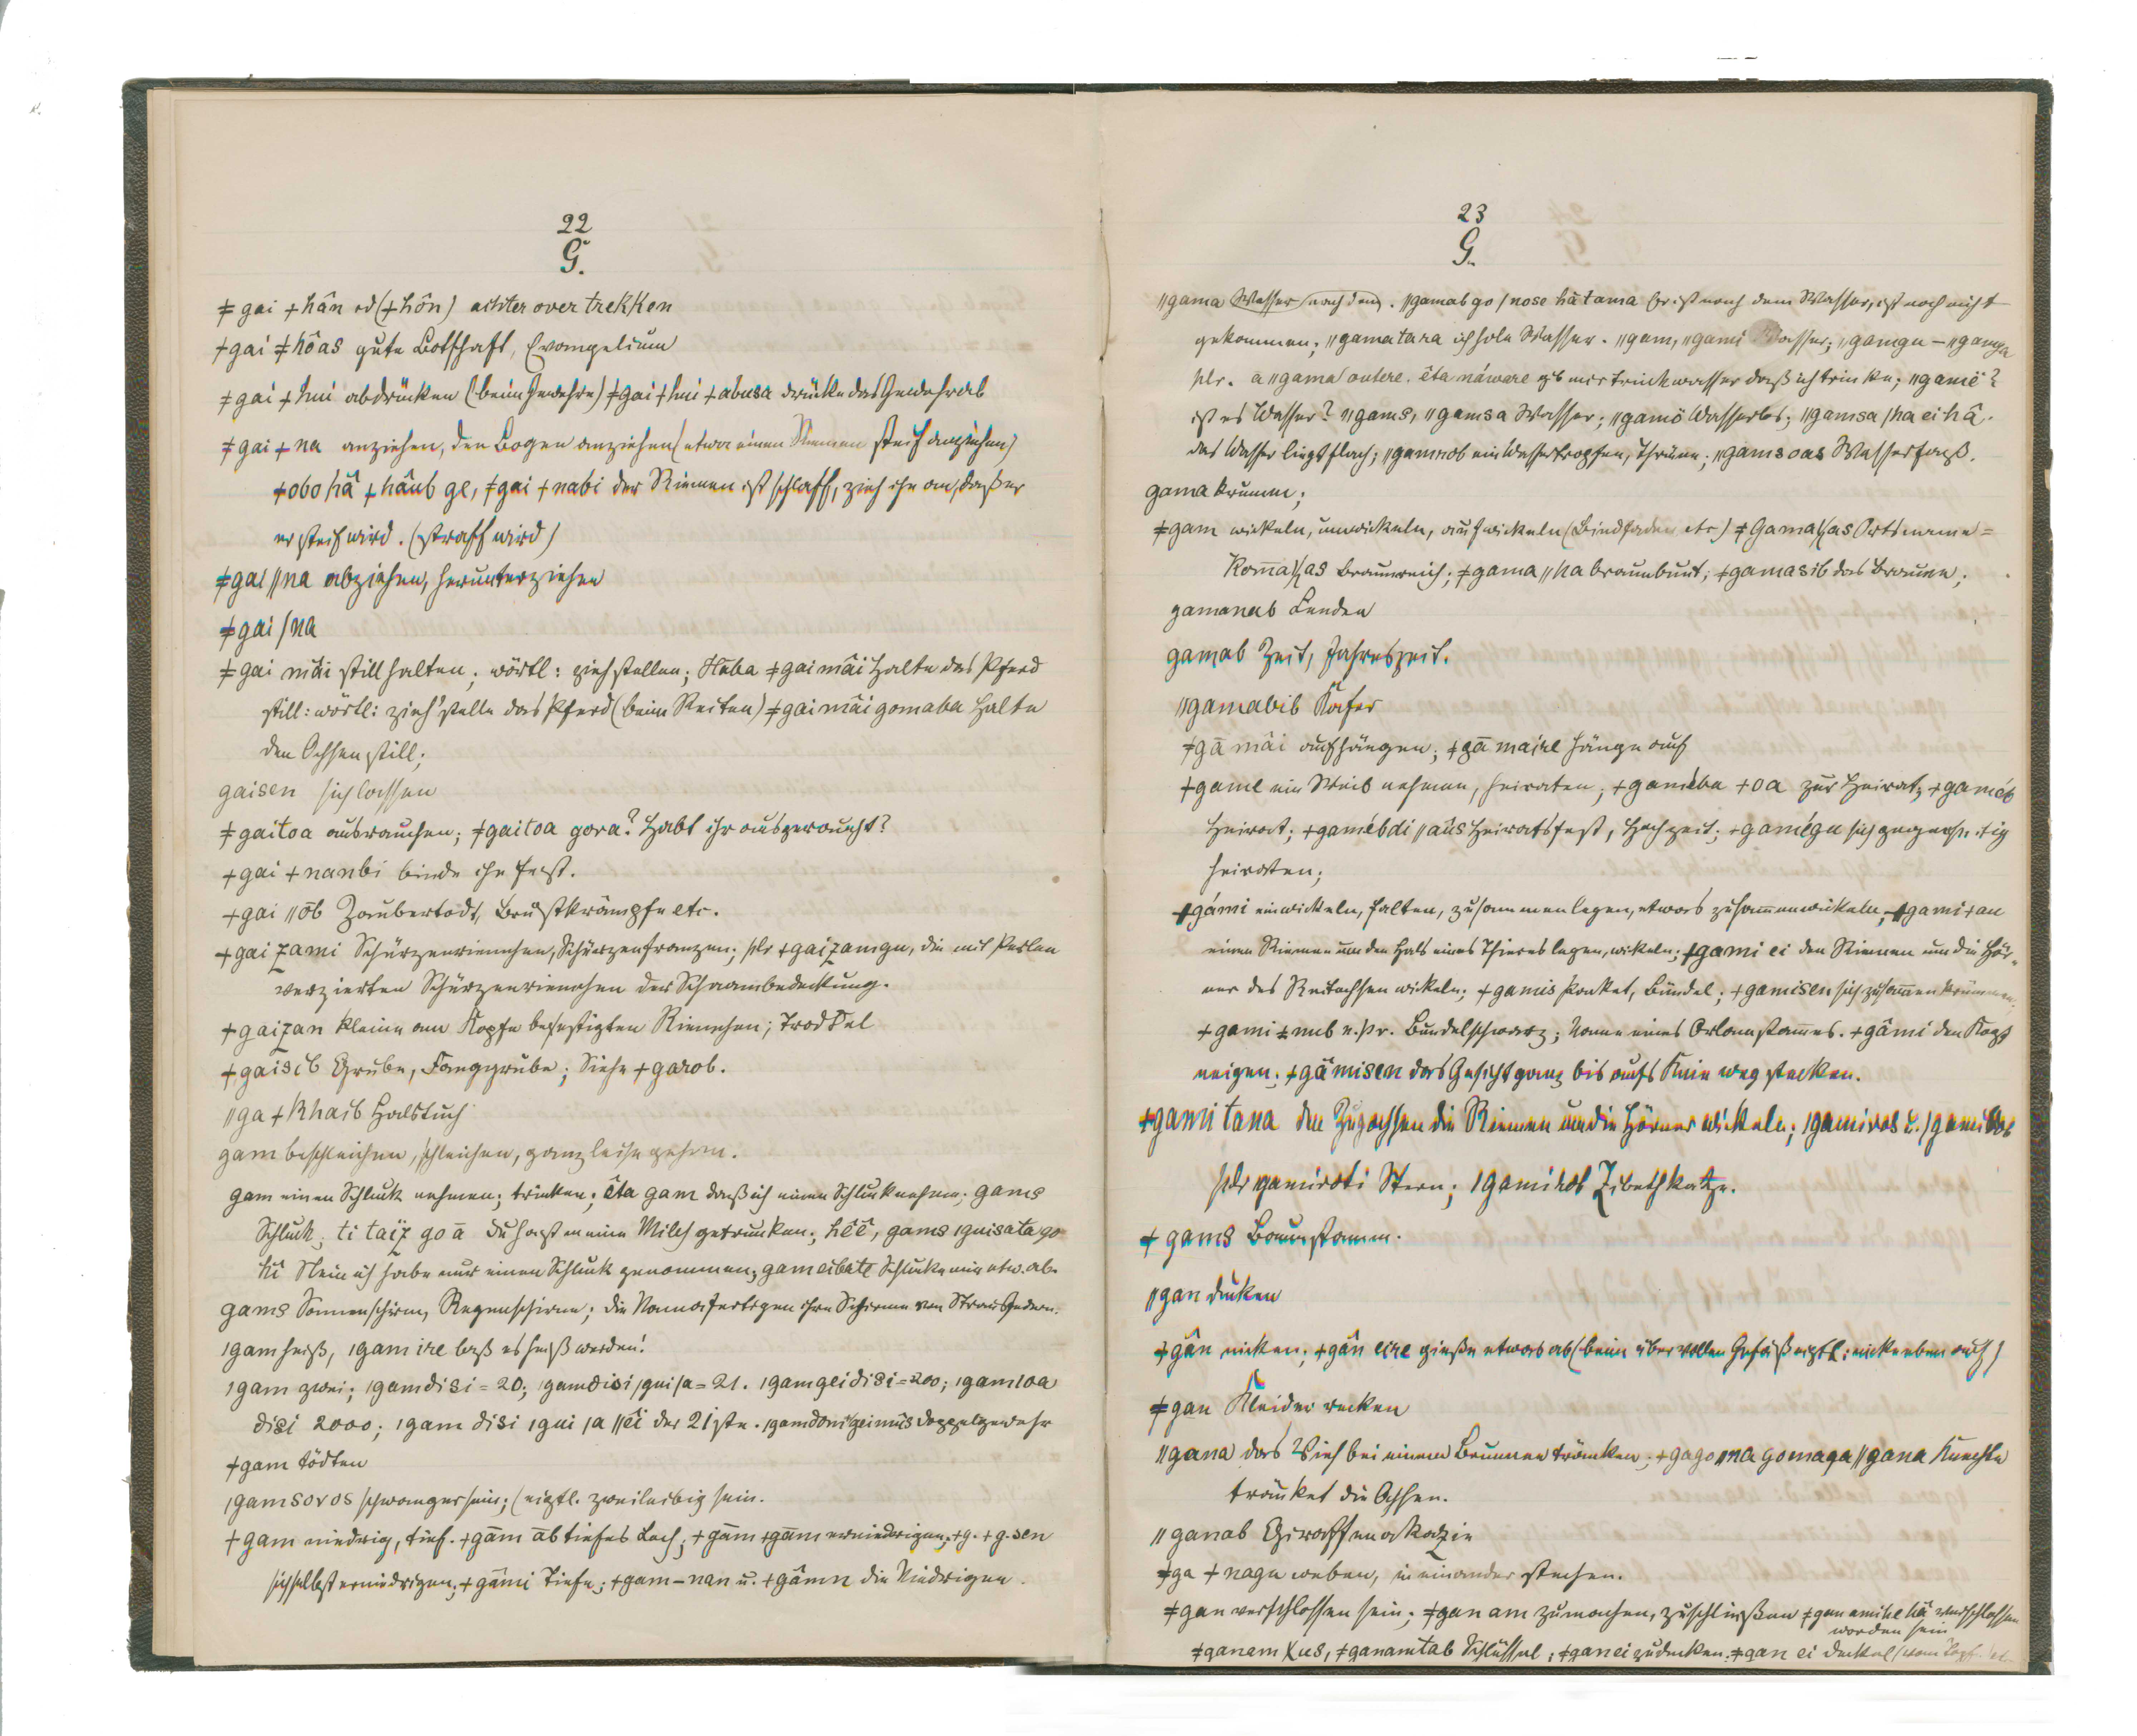 22
G.
ǂgai ǂhân od (ǂhôn) achter over trekken
ǂgai ǂhôas gute Botschaft, Evangelium
ǂgai ǂhui abdrücken (beim Gewehre) ǂgai ǂhui ǂabusa drücke das Gewehr ab
ǂgai ǂna anziehen, den Bogen anziehen (etwa einen Riemen steif anziehen)
ǂobo hâ ǂhâub ge, ǂgai ǂnabi der Riemen ist schlaff, zieh ihn an, daß er
er steif wird. (straff wird)
ǂgai ǁna abziehen, herunterziehen
ǂgai ǀna
ǂgai mâi still halten; wörtl: zieh stellen; Hâba ǂgai mâi halte das Pferd
still: wörtl: zieh' stelle das Pferd (beim Reiten) ǂgai mâi gomaba halte
den Ochsen still;
gaisen sich lassen
ǂgaitoa ausrauchen; ǂgaitoa gora? Habt ihr ausgeraucht?
ǂgai ǂnanbi binde ihn fest.
ǂgai ǁōb Zaubertodt, Brustkrämpfe etc.
ǂgaiχami Schürzenriemchen, Schürzenfranzen; plr ǂgaiχamgu, die mit Perlen
verzierten Schürzenriemchen der Schaambedeckung.
ǂgaiχan kleine am Kopfe befestigten Riemchen; Troddel
ǂgaisib Grube, Fanggrube; Siehe ǂgarob.
ǁga ǂkhaib Halstuch
gam beschleichen, schleichen, ganz leise gehen.
gam einen Schluck nehmen; trinken; êta gam daß ich einen Schluck nehme; gams
Schluck; ti taiχ go ā du hast meine Milch getrunken; hêê, gams ǀguisata go
hî Nein ich habe nur einen Schluck genommen; gamcibate Schlucke mir etw. ab.
gams Sonnenschirm, Regenschirm; die Nama fertigen ihre Schirme von Straußfedern.
ǀgam heiß, ǀgam ire laß es heiß werden!
ǀgam zwei; ǀgamdisi = 20; ǀgamdisi ǀgui ǀa = 21. ǀgamgeidisi = 200; ǀgamǀoa
disi 2000; ǀgam disi ǀgui ǀa ǁêi der 21ste. ǀgamdomǃgeimûs Doppelgewehr
ǂgam tödten
ǀgamsoros schwanger sein; (eigtl. zweileibig sein.
ǂgam niedrig, tief. ǂgām āb tiefes Loch; ǂgām ǂgām erniedrigen; ǂg. ǂg. sen
sich selbst erniedrigen; ǂgāmi Tiefe; ǂgam-nan u. ǂgâmn die Niedrigen.
23
G.
ǁgama Wasser nach dem. ǁgamab go ǀnose hā tama Er ist nach dem Wasser, ist noch nicht
gekommen; ǁgamatara ich hole Wasser. ǁgam, ǁgami Wasser; ǁgamgu - ǁgamga
plr. a ǁgama outere. êta náware gib mir Trinkwasser daß ich trinke; ǁgamë?
ist es Wasser? ǁgams, ǁgamsa Wasser; ǁgamö Wasserlos; ǁgamsa ǀha ei hâ.
das Wasser liegt flach; ǁgamrob ein Wassertropfen, Thräne; ǁgamsoas Wasserfaß.
gama krumm;
ǂgam wickeln, umwickeln, aufwickeln (Bindfaden etc) ǂGamaǃχas Ortsname =
Kom̄aǃχas Braunreich; ǂgama ǁha braunbunt; ǂgamasib das Braune;
gamanab Lenden
gamab Zeit, Jahreszeit.
ǁgamabib Käfer
ǂgā mâi aufhängen; ǂgā maire hänge auf
ǂgame ein Weib nehmen, heiraten; ǂgaméba ǂoa zur Heirat; ǂgaméb
Heirat; ǂgamébdi ǁaûs Heiratsfest, Hochzeit; ǂgamégu sich gegenseitig
heiraten;
ǂgámi einwickeln, falten, zusammenlegen, etwas zusam̄enwickeln; ǂgamiǂau
einen Riemen um den Hals eines Thieres legen, wickeln; ǂgami ei den Riemen um die Hör-
ner des Reitochsen wickeln; ǂgamis Packet, Bündel; ǂgamisen sich zusam̄en krümmen.
ǂgami ǂnub n. pr. Bündelschwarz; Name eines Orlamstam̄es. ǂgâmi den Kopf
neigen; ǂgâmisen das Gesicht ganz bis aufs Knie weg stecken.
ǂgami tana den Zugochsen die Riemen um die Hörner wickeln; ǀgamiros u. ǀgamirob
plr ǀgamiroti Stern; ǀgamirob Zibethkatze.
ǂgams Baumstamm.
ǁgan ducken
ǂgân nicken; ǂgân eire gieße etwas ab (beim übervollen Gefäß eigtl: nicke oben auf)
ǂgan Kleider recken
ǁgana das Vieh bei einem Brunnen tränken; ǂgago ǁna gomaga ǁgana Knechte
tränket die Ochsen.
ǁganab Giraffenakazie
ǂga ǂnagu weben, in einander stechen.
ǂgan verschlossen sein; ǂgan am zumachen, zuschließen ǂgan amihe hâ verschlossen
worden sein
ǂganamǃχus, ǂganamtab Schlüssel; ǂganei zudecken; ǂgan ei Deckel (vom Topf